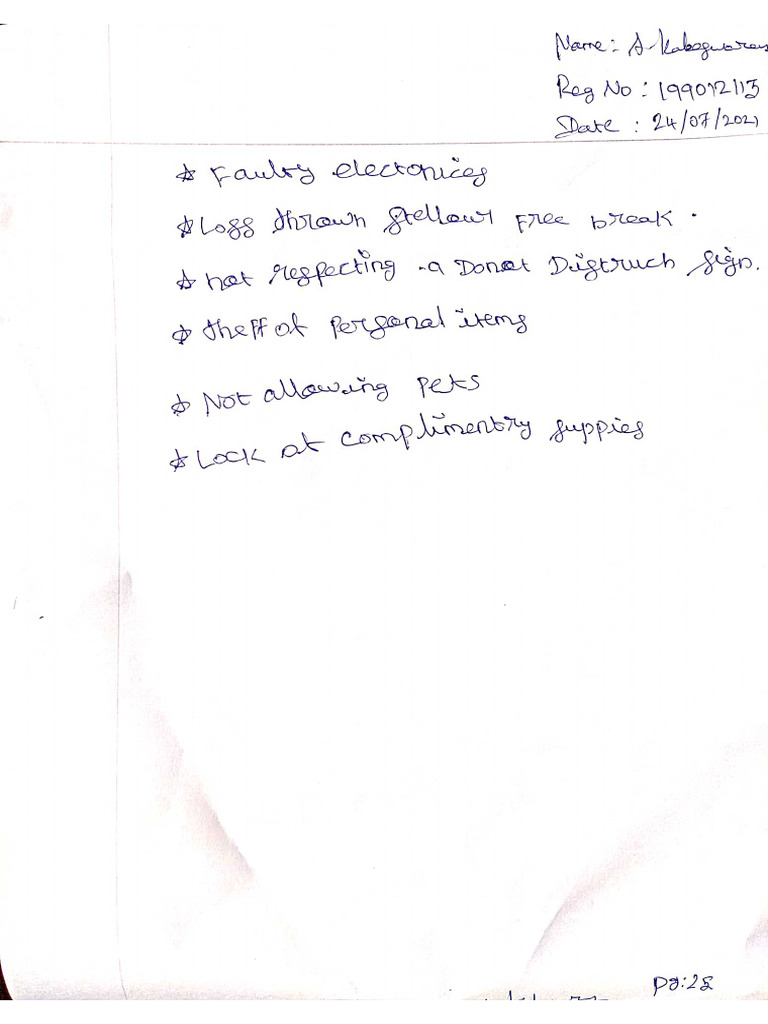 Name: A. Kabeswaran
Reg No: 199012113
Date : 24/07/2021
* Faulty electonices
* Loss thrown stellour Free break.
* not respecting a Donot Distruch sign.
* theff of personal items
* Not allowing pets
* Lock at complimentry suppies
pg:28